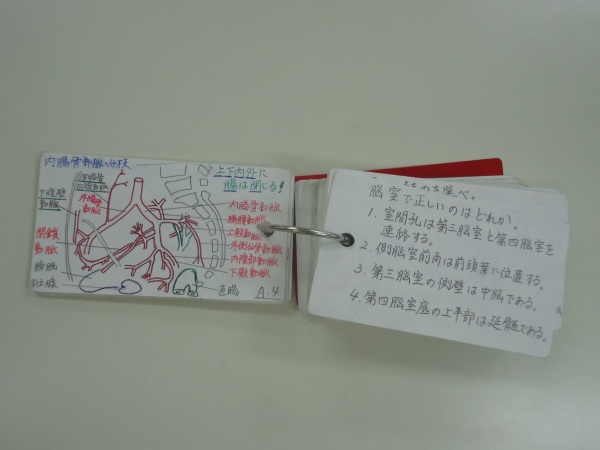 内腸骨動脈の分枝
上下内外に
腸は閉じる!
総腸骨
動脈
外腸骨
動脈
下腹壁
動脈
閉鎖
動脈
膀胱
前立腺
内腸骨動脈
腸腰動脈
上殿動脈
外側仙骨動脈
内陰部動脈
下殿動脈
直腸
A.4
選べ。
脳室で正しいのはどれか。
1. 室間孔は第三脳室と第四脳室を
連絡する。
2. 側脳室前角は前頭葉に位置する。
3. 第三脳室の側壁は中脳である。
4. 第四脳室底の上半部は延髄である。